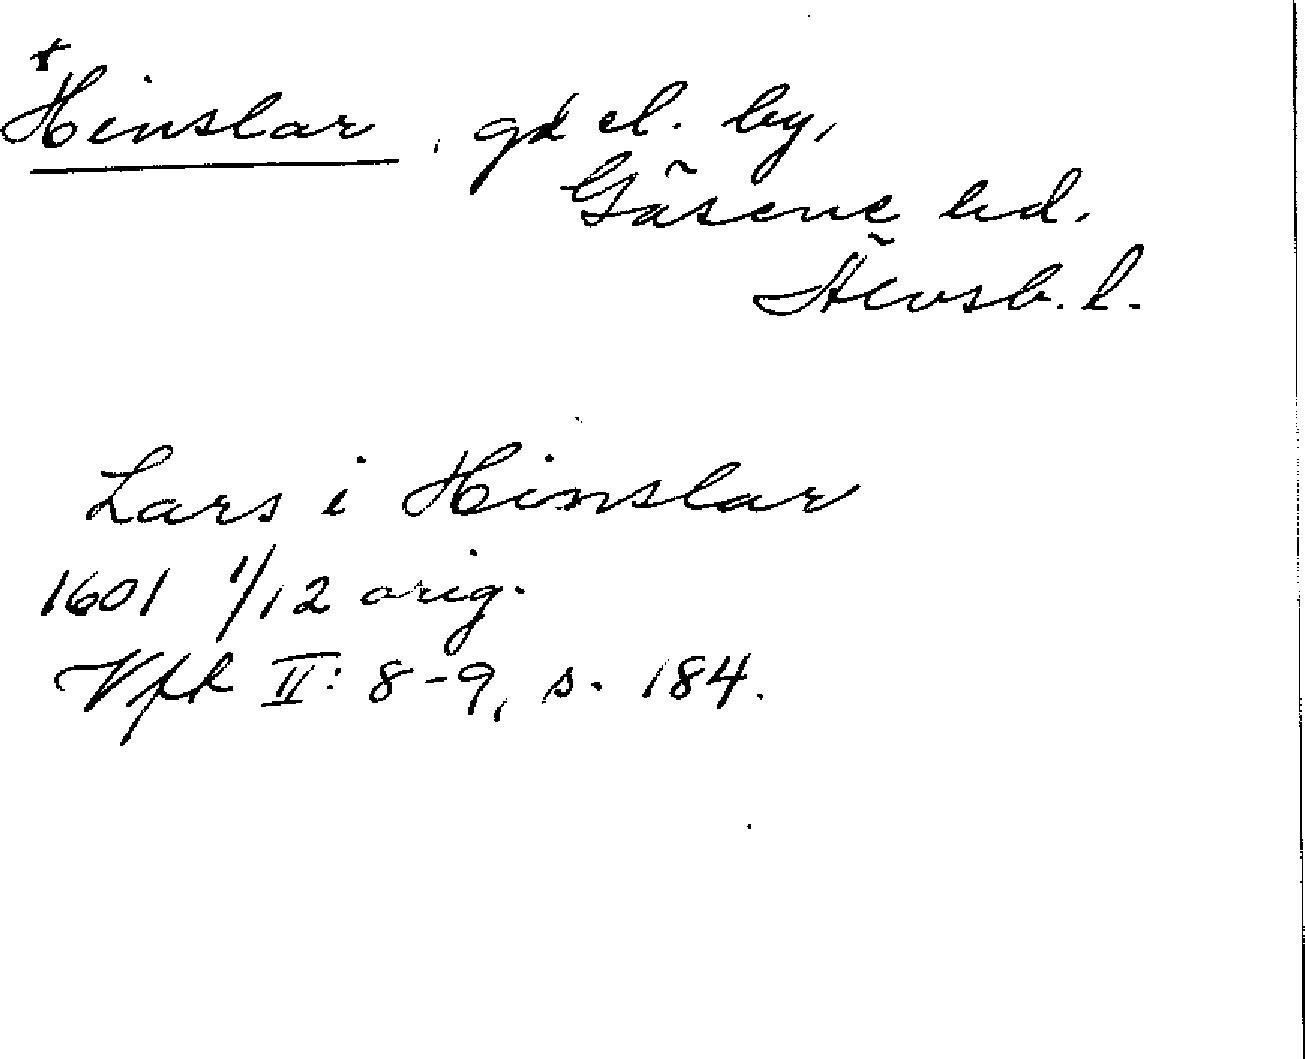 +
Hinslar, gd el. by,
Gäsene hd.
Älvsb. l.
Lars i Hinslar
1601 1/12 orig.
Vfk II: 8-9, s. 184.